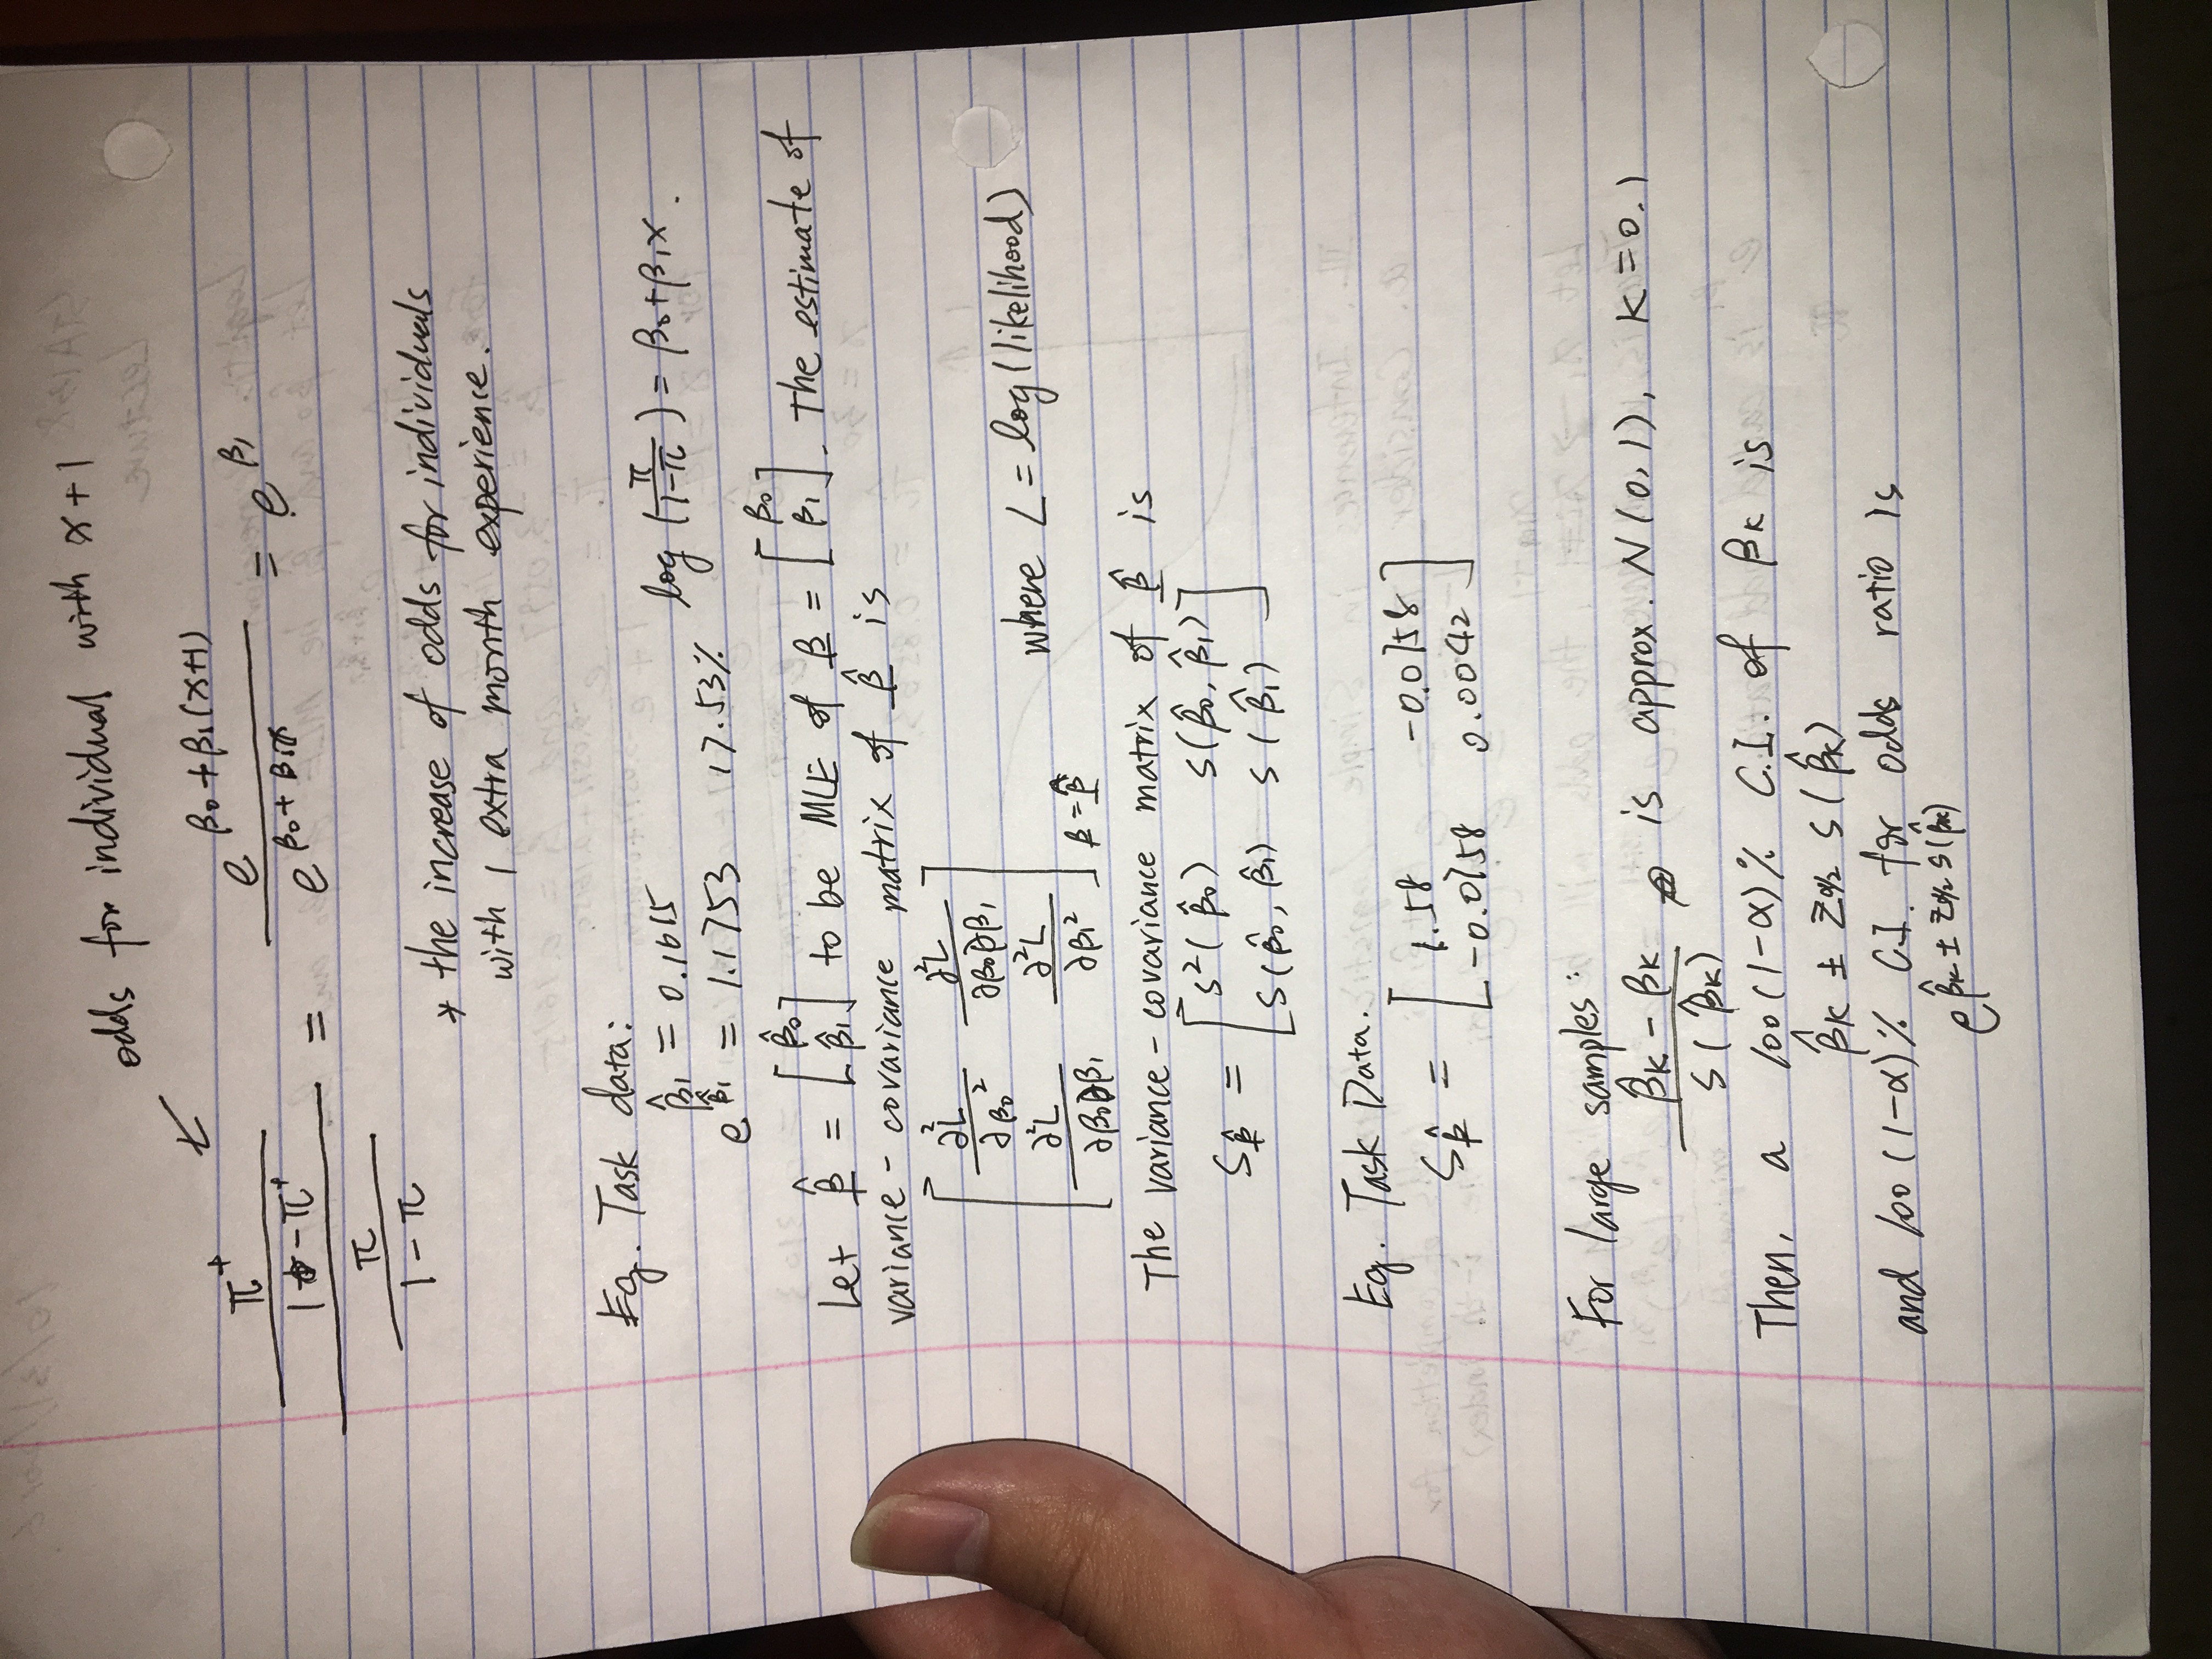 odds for individual with x+1
π⁺ / (1 - π⁺) / (π / (1-π)) = e^(β₀+β₁(x+1)) / e^(β₀+β₁x) = e^β₁
* the increase of odds for individuals
with 1 extra month experience.
Eg. Task data:
β̂₁ = 0.1615
log(π/(1-π)) = β₀+β₁x.
e^β̂₁ = 1.1753 17.53%
Let β̂ = [β̂₀ β̂₁] to be MLE of β = [β₀ β₁]. The estimate of
variance-covariance matrix of β̂ is
[∂²L/∂β₀² ∂²L/∂β₀∂β₁
∂²L/∂β₀∂β₁ ∂²L/∂β₁²] β=β̂ where L = log(likelihood)
The variance-covariance matrix of β̂ is
S_β̂ = [s²(β̂₀) s(β̂₀, β̂₁)
s(β̂₀, β̂₁) s(β̂₁)]
Eg. Task Data.
S_β̂ = [1.58 -0.0758
-0.0758 0.0042]
For large samples:
(β̂k - βk) / s(β̂k) is approx. N(0,1), k=0.1
Then, a 100(1-α)% C.I. of βk is
β̂k ± Zα/2 s(β̂k)
and 100(1-α)% C.I. for odds ratio is
e^(β̂k ± Zα/2 s(β̂k))